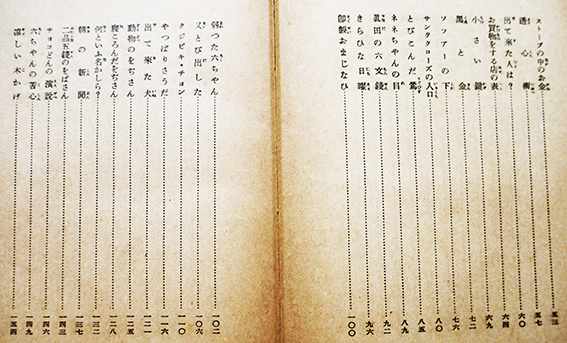 ストーブの中のお金 五三
透心術 五七
出て来た人は？ 六〇
お買物をする店の表 六四
小さい鏡 六九
黒と金 七二
ソファーの下 七六
サンタクローズの入口 八〇
とびこんだ鷲 八五
ネネちゃんの目 八九
眞田の六文錢 九二
きらひな日曜 九六
卽製おまじなひ 一〇〇
弱つた六ちゃん 一〇二
又とび出した 一〇六
クジビキ・チョン 一一〇
やつぱりさうだ 一一六
出て来た犬 一二一
動物のをぢさん 一二五
寢ころんだをぢさん 一二八
何といふ名かしら？ 一三二
朝の新聞 一三七
二品五錢のをばさん 一四三
チョコどんの演說 一四六
六ちゃんの苦心 一四九
凉しい木かげ 一五四